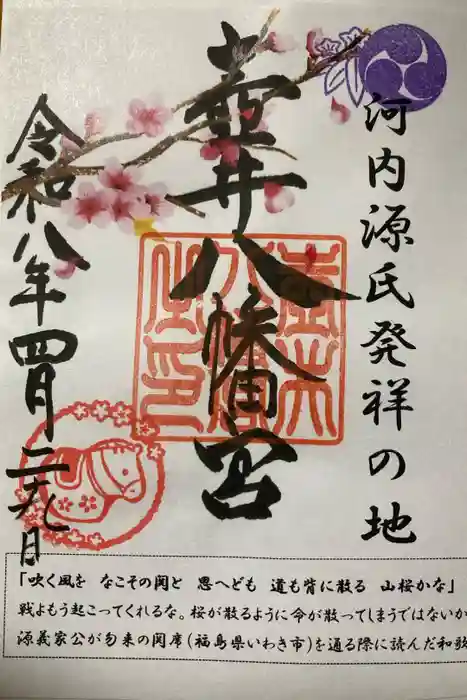 河内源氏発祥の地
壺井八幡宮
令和八年四月二十九日
「吹く風を なこその関と 思へども 道も背に散る 山桜かな」
戦よもう起こってくれるな。桜が散るように命が散ってしまうではないか
源義家公が勿来の関席(福島県いわき市)を通る際に読んだ和歌